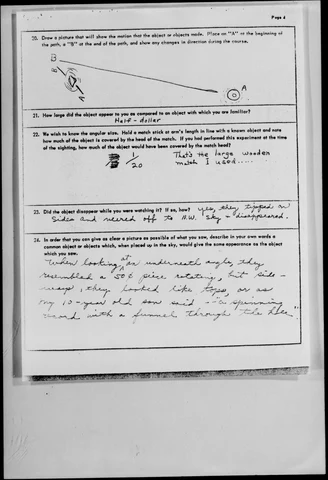 Page 4
20. Draw a picture that will show the motion that the object or objects made. Place an "A" at the beginning of
the path, a "B" at the end of the path, and show any changes in direction during the course.
B
B
A
A
21. How large did the object appear to you as compared to an object with which you are familiar?
Half - dollar
22. We wish to know the angular size. Hold a match stick at arm's length in line with a known object and note
how much of the object is covered by the head of the match. If you had performed this experiment at the time
of the sighting, how much of the object would have been covered by the match head?
1/20
That's the large wooden
match I used.....
23. Did the object disappear while you were watching it? If so, how? yes, they tipped on
Sides and veered off to N.W. sky - disappeared.
24. In order that you can give as clear a picture as possible of what you saw, describe in your own words a
common object or objects which, when placed up in the sky, would give the same appearance as the object
which you saw.
When looking at an underneath angle, they
resembled a 50¢ piece rotating, but side-
ways, they looked like tops, or as
my 10-year old son said -- "a spinning
with a funnel through the